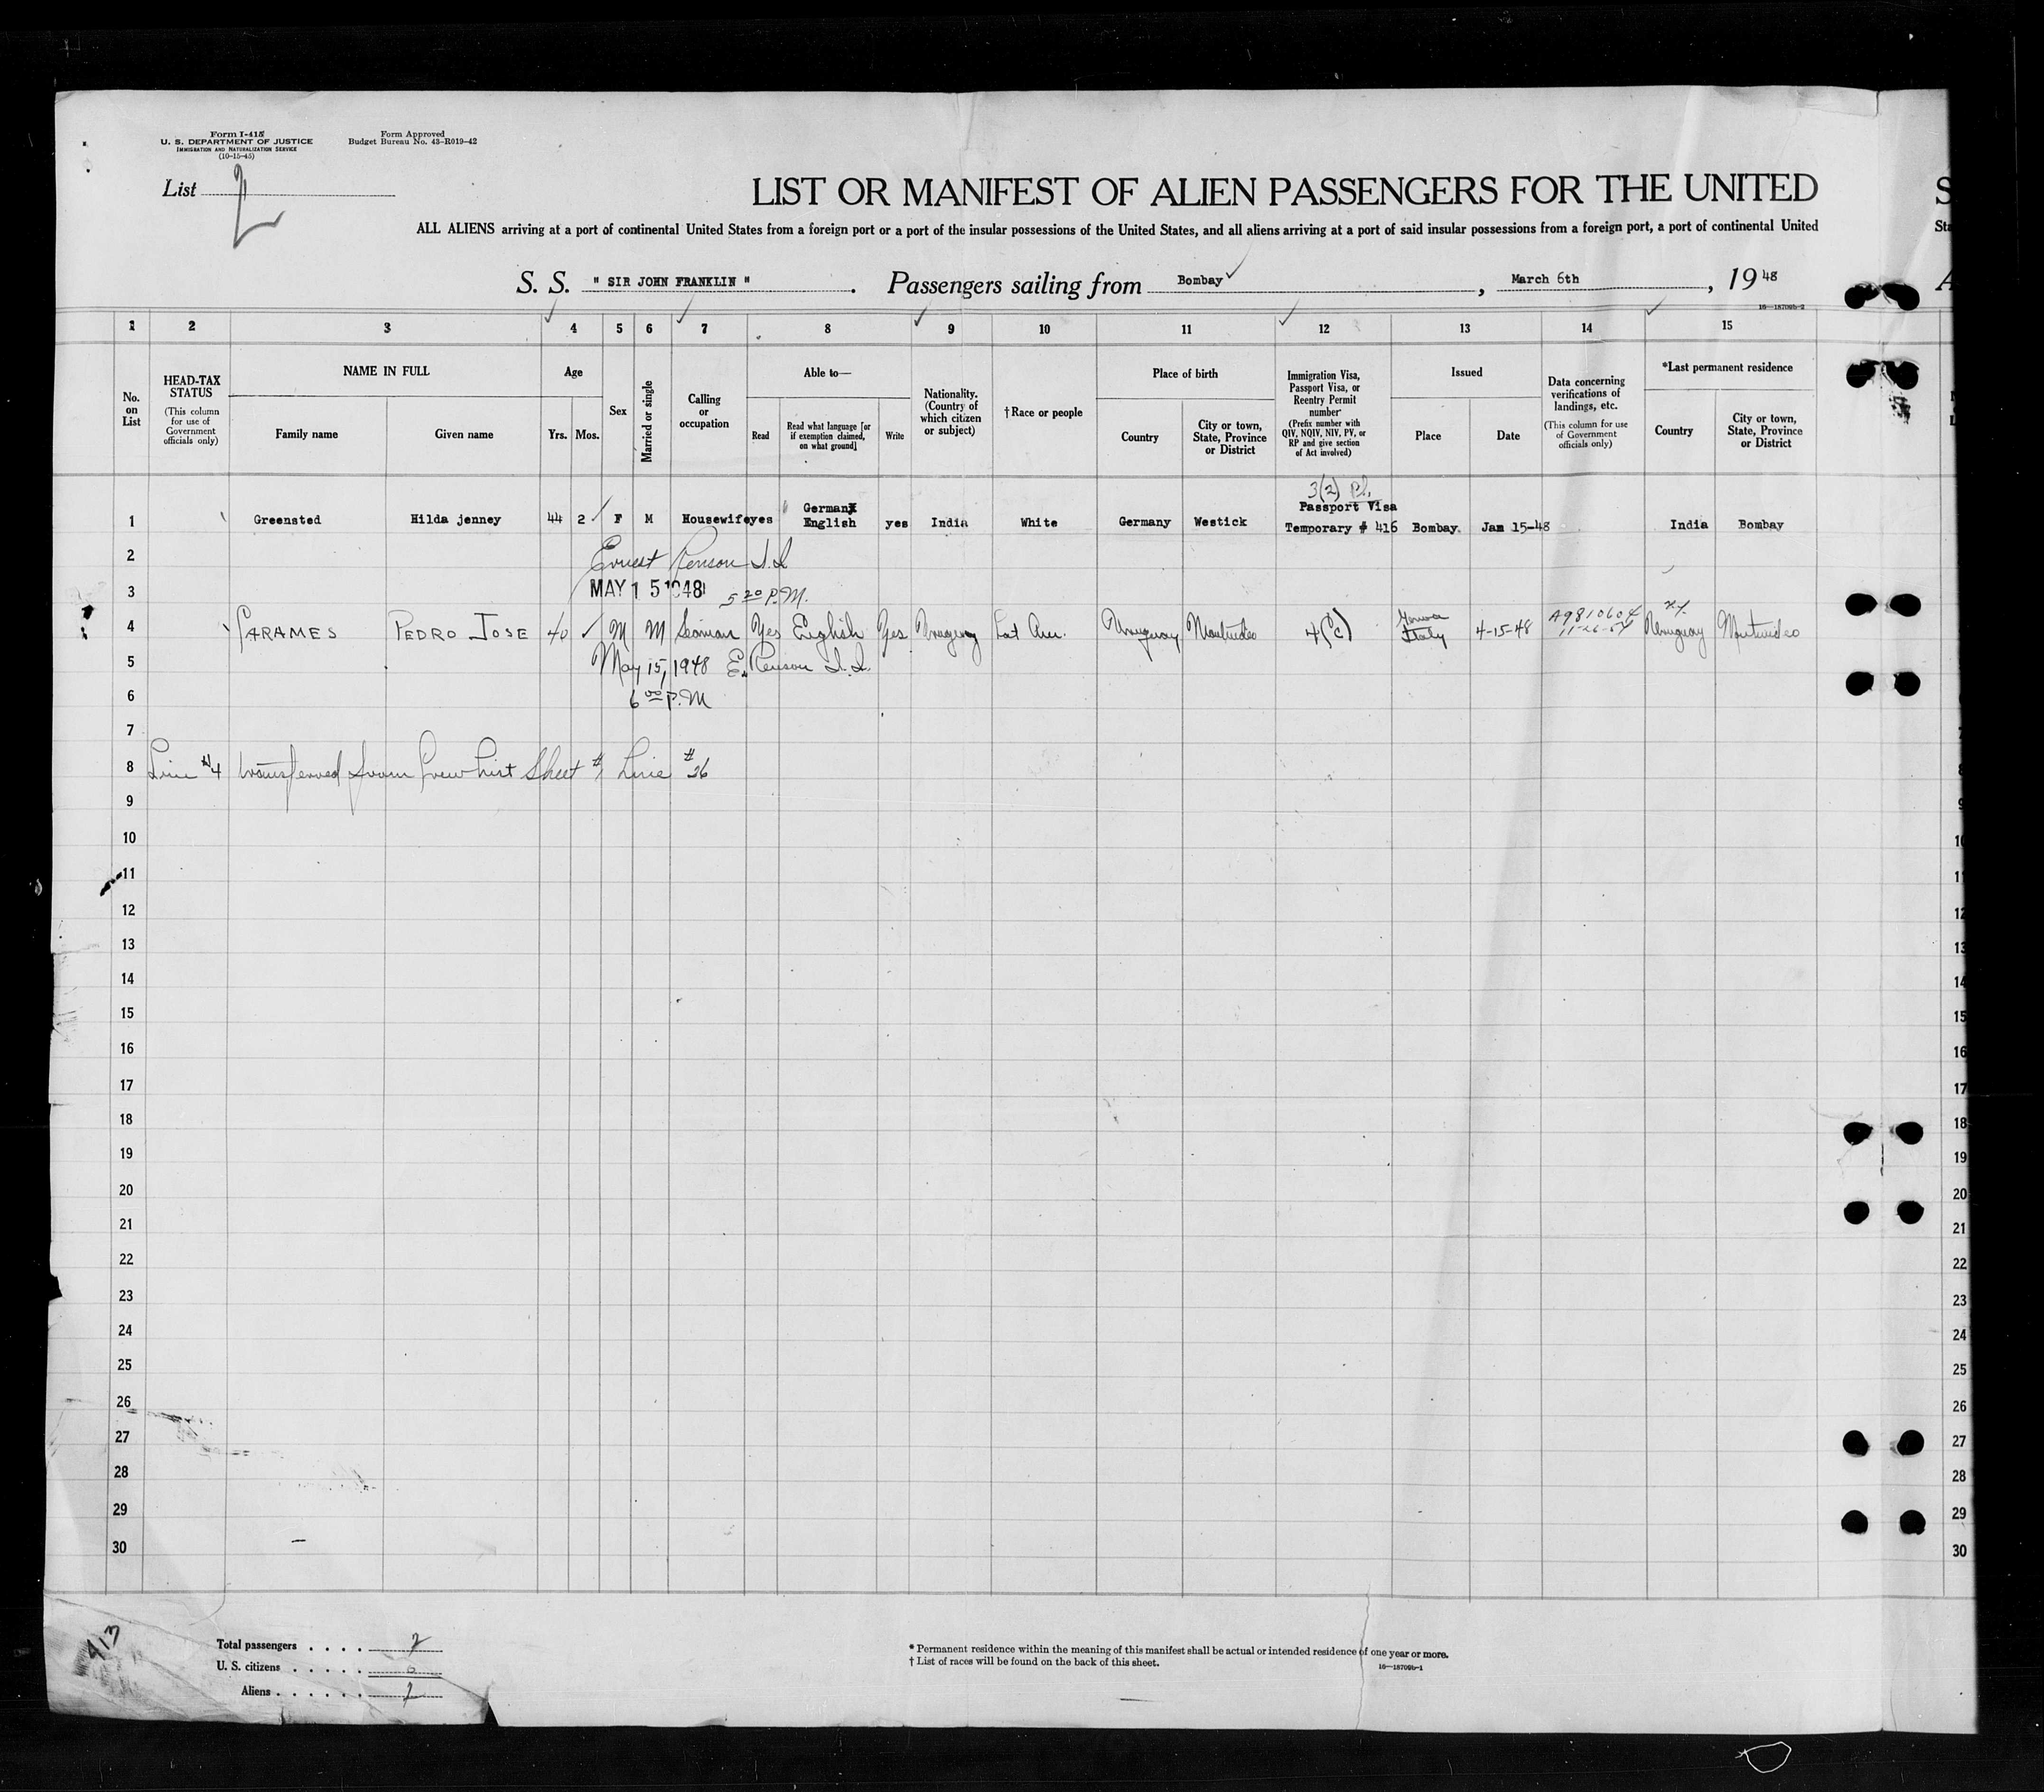 Form I-415
U. S. DEPARTMENT OF JUSTICE
IMMIGRATION AND NATURALIZATION SERVICE
(10-15-45)
Form Approved
Budget Bureau No. 43-R019-42
List 2
LIST OR MANIFEST OF ALIEN PASSENGERS FOR THE UNITED S
ALL ALIENS arriving at a port of continental United States from a foreign port or a port of the insular possessions of the United States, and all aliens arriving at a port of said insular possessions from a foreign port, a port of continental United Sta
S. S. " SIR JOHN FRANKLIN " . Passengers sailing from Bombay , March 6th , 19 48
16—18709b-2
1 2 3 4 5 6 7 8 9 10 11 12 13 14 15
No. on List
HEAD-TAX STATUS
(This column for use of Government officials only)
NAME IN FULL
Family name Given name
Age
Yrs. Mos.
Sex
Married or single
Calling or occupation
Able to—
Read
Read what language [or if exemption claimed, on what ground]
Write
Nationality. (Country of which citizen or subject)
†Race or people
Place of birth
Country
City or town, State, Province or District
Immigration Visa, Passport Visa, or Reentry Permit number
(Prefix number with QIV, NQIV, NIV, PV, or RP and give section of Act involved)
Issued
Place Date
Data concerning verifications of landings, etc.
(This column for use of Government officials only)
*Last permanent residence
Country
City or town, State, Province or District
3(2)
German Passport Visa
1 Greensted Hilda jenney 44 2 F M Housewife yes English yes India White Germany Westick Temporary # 416 Bombay. Jan 15-48 India Bombay
2 Ernest Renson I.I
3 MAY 15 1948 5 20 P.M.
4 CARAMES PEDRO JOSE 40 M M Seaman Yes English Yes Uruguay Lat Am. Uruguay Montevideo 4(c) Genoa Italy 4-15-48 A9810604 11-26-54 Uruguay Montevideo
5 May 15, 1948 E. Renson I.I.
6 6 00 P.M
7
8 Line #4 transferred from Crew List Sheet #1 Line #26
9
10
11
12
13
14
15
16
17
18
19
20
21
22
23
24
25
26
27
28
29
30
Total passengers . . . . 2
U. S. citizens . . . . . 0
Aliens . . . . . . 2
413
* Permanent residence within the meaning of this manifest shall be actual or intended residence of one year or more.
† List of races will be found on the back of this sheet.
16—18709b-1